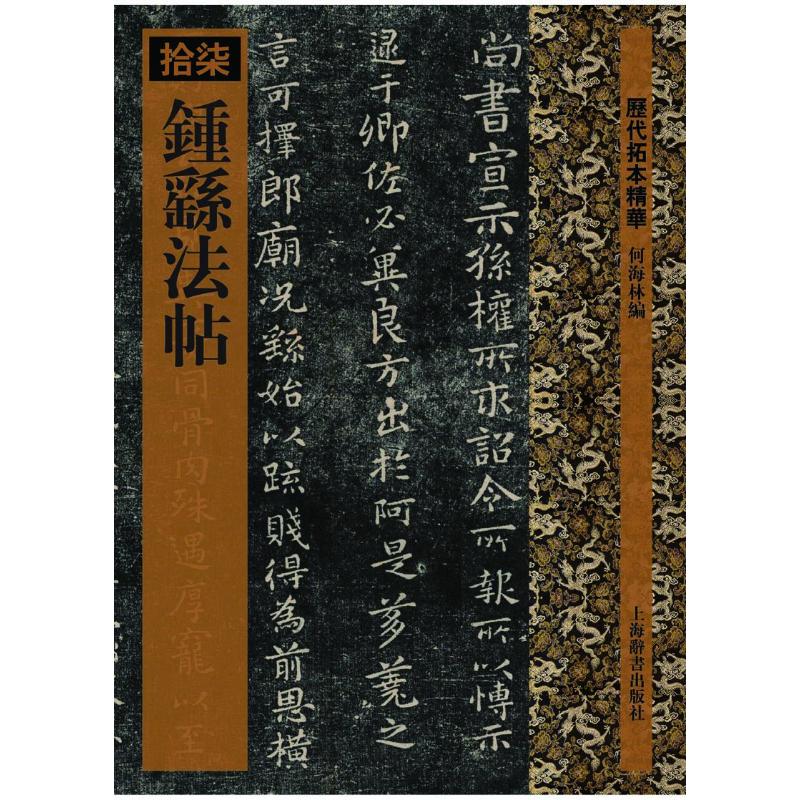 歷代拓本精華 何海林編
上海辭書出版社
尚書宣示孫權所求詔令所報所以博示
逮于卿佐必冀良方出於阿是芻蕘之
言可擇郎廟況繇始以疏賤得為前恩橫
拾柒
鍾繇法帖
同骨肉殊遇厚寵以至